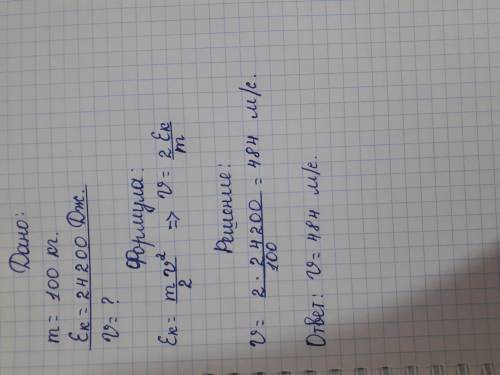 Дано:
m = 100 кг.
Eк = 24200 Дж.
v = ?
Формула:
Eк = m v² / 2 => v = 2 Eк / m
Решение:
v = 2 · 24200 / 100 = 484 м/с.
Ответ: v = 484 м/с.